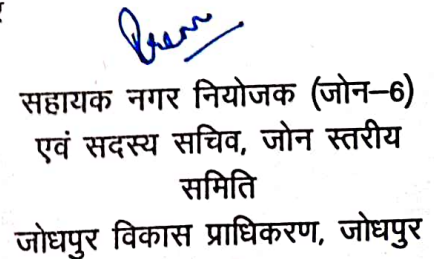 सहायक नगर नियोजक (जोन–6)
एवं सदस्य सचिव, जोन स्तरीय
समिति
जोधपुर विकास प्राधिकरण, जोधपुर